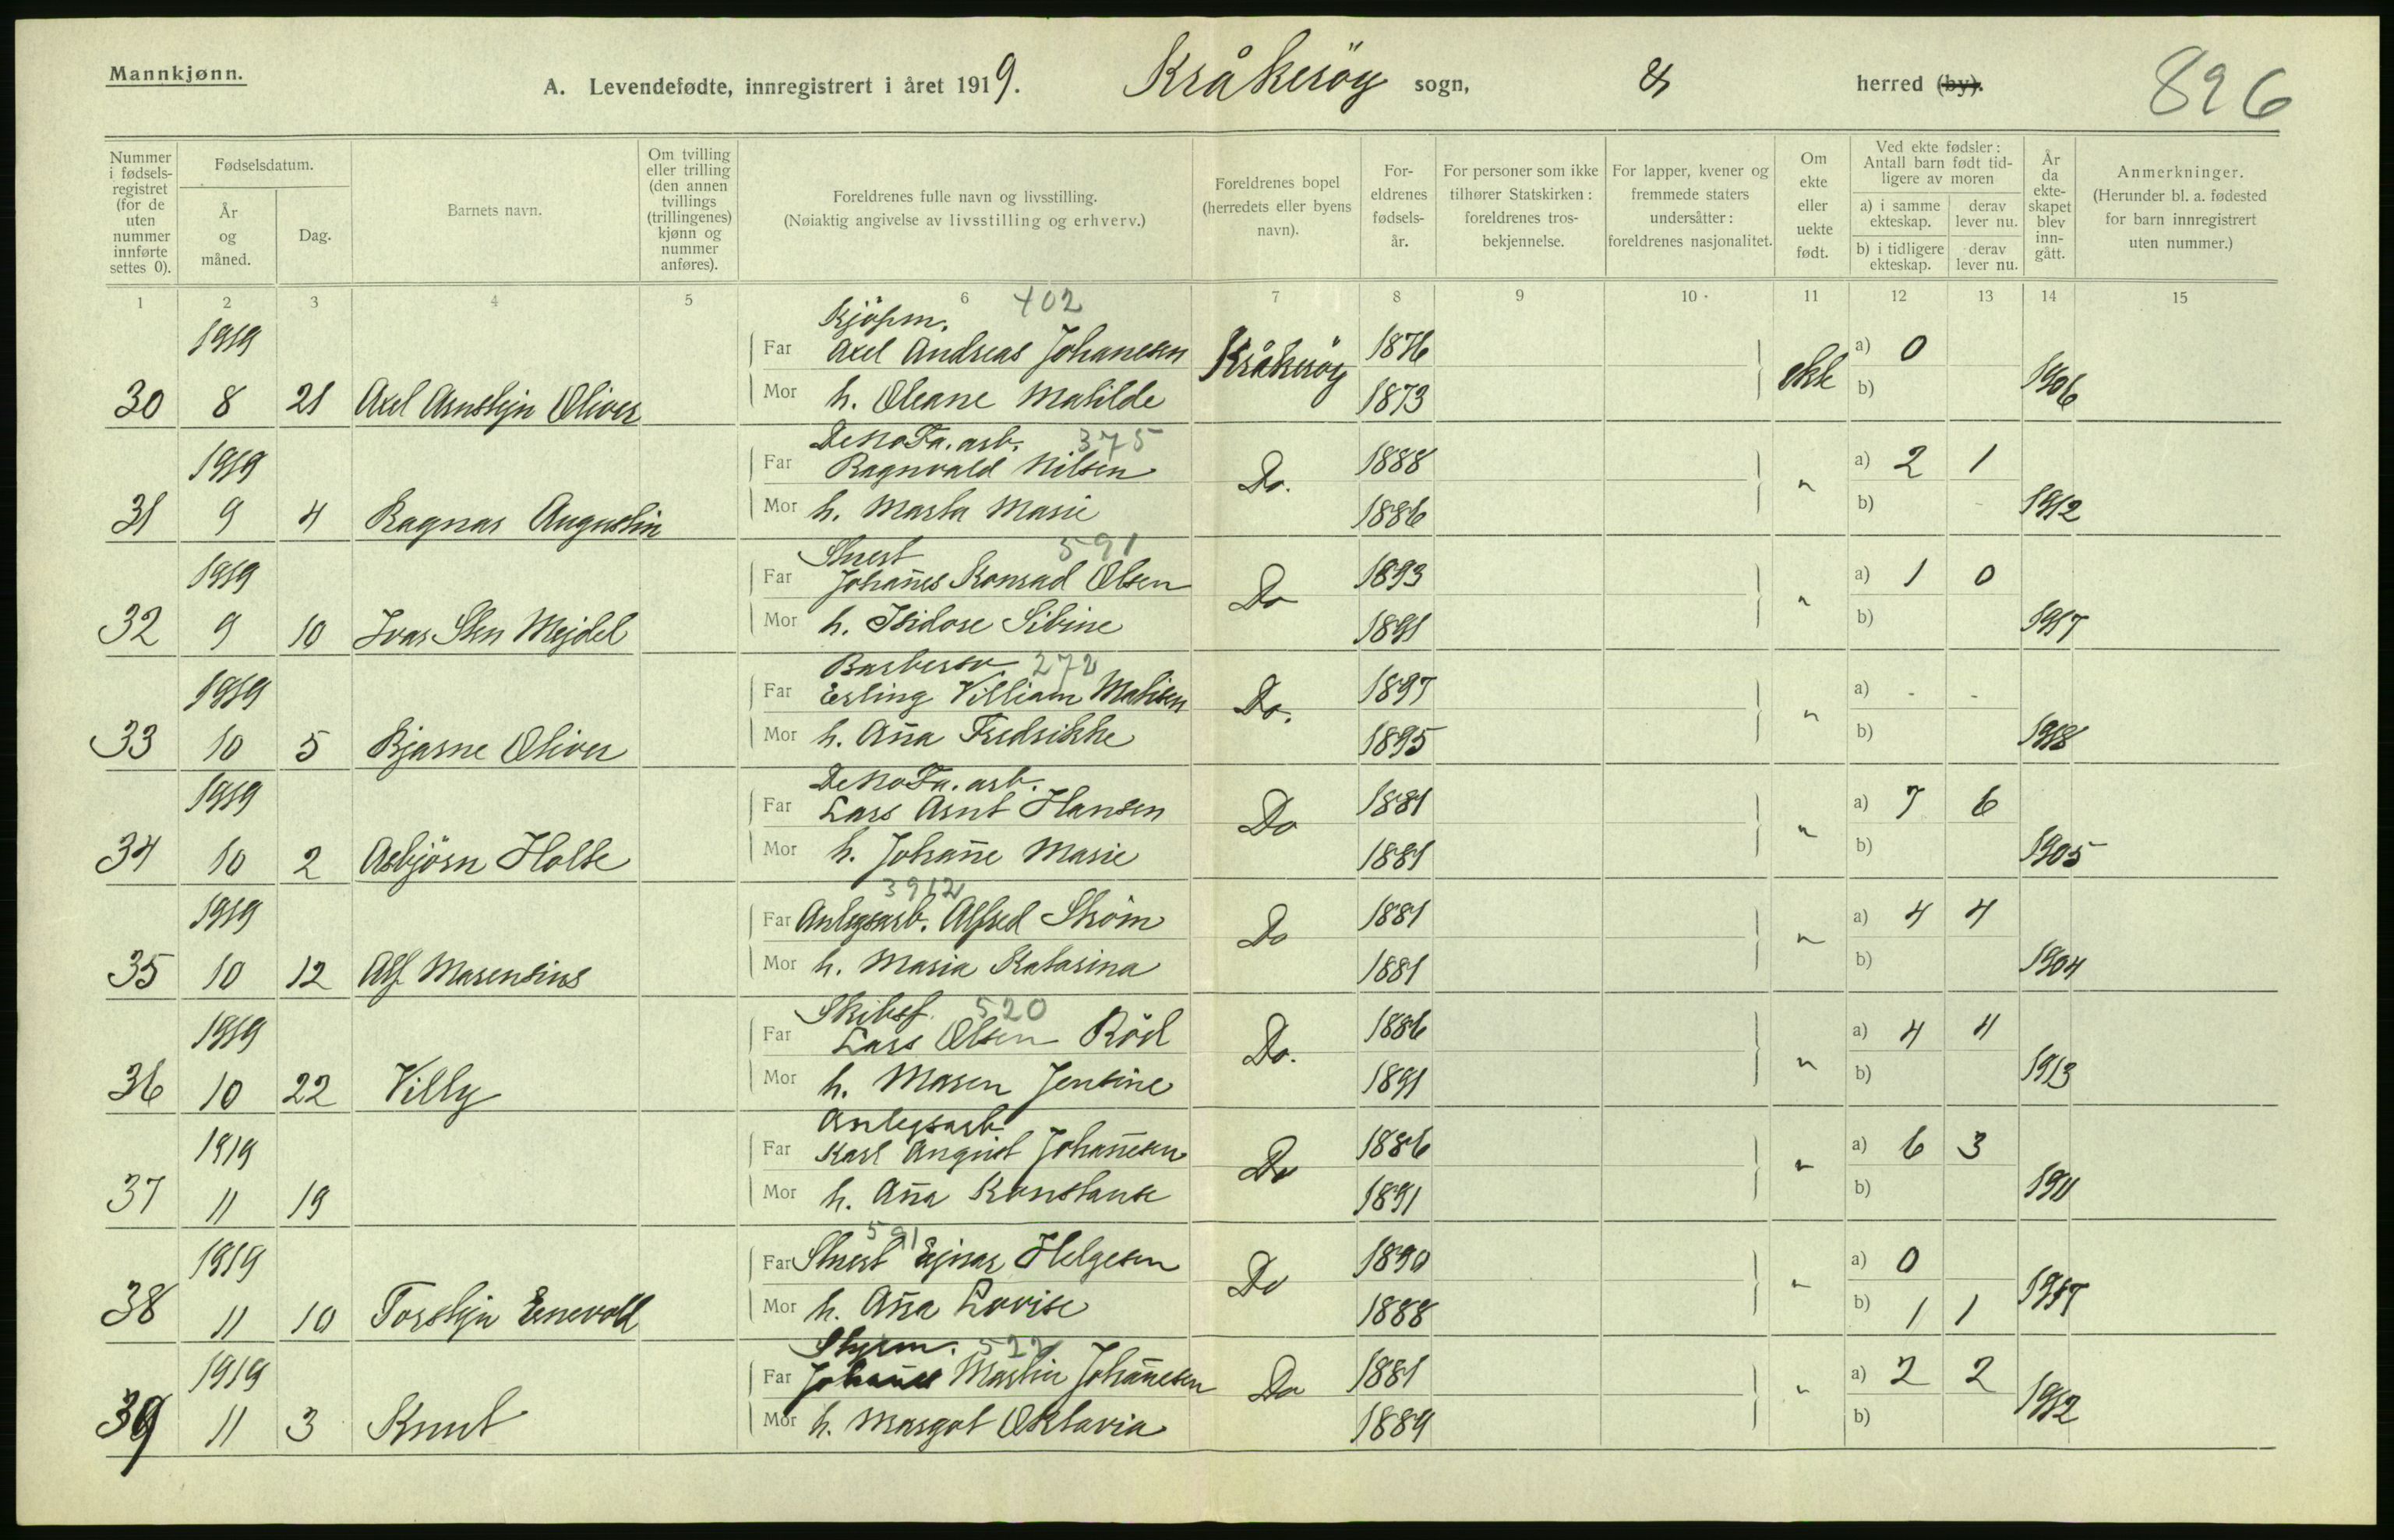 Mannkjønn.
A. Levendefødte, innregistrert i året 1919. Kråkeröy sogn, & herred (by). 896
Nummer i fødselsregistret (for de uten nummer innførte settes 0).
Fødselsdatum.
År og måned.
Dag.
Barnets navn.
Om tvilling eller trilling (den annen tvillings (trillingenes) kjønn og nummer anføres).
Foreldrenes fulle navn og livsstilling.
(Nøiaktig angivelse av livsstilling og erhverv.)
Foreldrenes bopel (herredets eller byens navn).
For-eldrenes fødsels-år.
For personer som ikke tilhører Statskirken: foreldrenes tros-bekjennelse.
For lapper, kvener og fremmede staters undersåtter: foreldrenes nasjonalitet.
Om ekte eller uekte født.
Ved ekte fødsler: Antall barn født tid-ligere av moren
a) i samme ekteskap.
derav lever nu.
b) i tidligere ekteskap.
derav lever nu.
År da ekte-skapet blev inn-gått.
Anmerkninger.
(Herunder bl. a. fødested for barn innregistrert uten nummer.)
1 2 3 4 5 6 7 8 9 10 11 12 13 14 15
Kjöpm. 402
1919 Far Axel Andreas Johanesen Kråkeröy 1876 ekte a) 0
30 8 21 Axel Arnstejn Oliver Mor h. Oleane Matilde 1873 b) 1906
DeNoFa. arb. 375
1919 Far Ragnvald Nilsen Do. 1888 " a) 2 1
31 9 4 Ragnar Augustin Mor h. Marta Marie 1886 b) 1912
Stuert 591
1919 Far Johañes Konrad Olsen Do 1893 " a) 1 0
32 9 10 Ivar Sten Mejdel Mor h. Isidore Sibine 1891 b) 1917
Barbersv. 272
1919 Far Erling Villiam Matisen Do. 1897 " a) - -
33 10 5 Bjarne Oliver Mor h. Aña Fredrikke 1895 b) 1918
DeNoFa. arb.
1919 Far Lars Arnt Hansen Do 1881 " a) 7 6
34 10 2 Asbjörn Holte Mor h. Johañe Marie 1881 b) 1905
3912
1919 Far Anlegsarb. Alfred Ström Do 1881 " a) 4 4
35 10 12 Alf Marensius Mor h. Maria Katarina 1881 b) 1904
Skibsf. 520
1919 Far Lars Olsen Röd Do. 1886 " a) 4 4
36 10 22 Villy Mor h. Maren Jensine 1891 b) 1913
Anlegsarb.
1919 Far Karl August Johañesen Do 1886 " a) 6 3
37 11 19 Mor h. Aña Konstanse 1891 b) 1911
591
1919 Far Stuert Ejnar Helgesen Do 1890 " a) 0
38 11 10 Torstejn Enevold Mor h. Aña Lovise 1888 b) 1 1 1917
Styrm. 522
1919 Far Johañes Martin Johañesen Do 1881 " a) 2 2
39 11 3 Knut Mor h. Margot Oktavia 1889 b) 1912